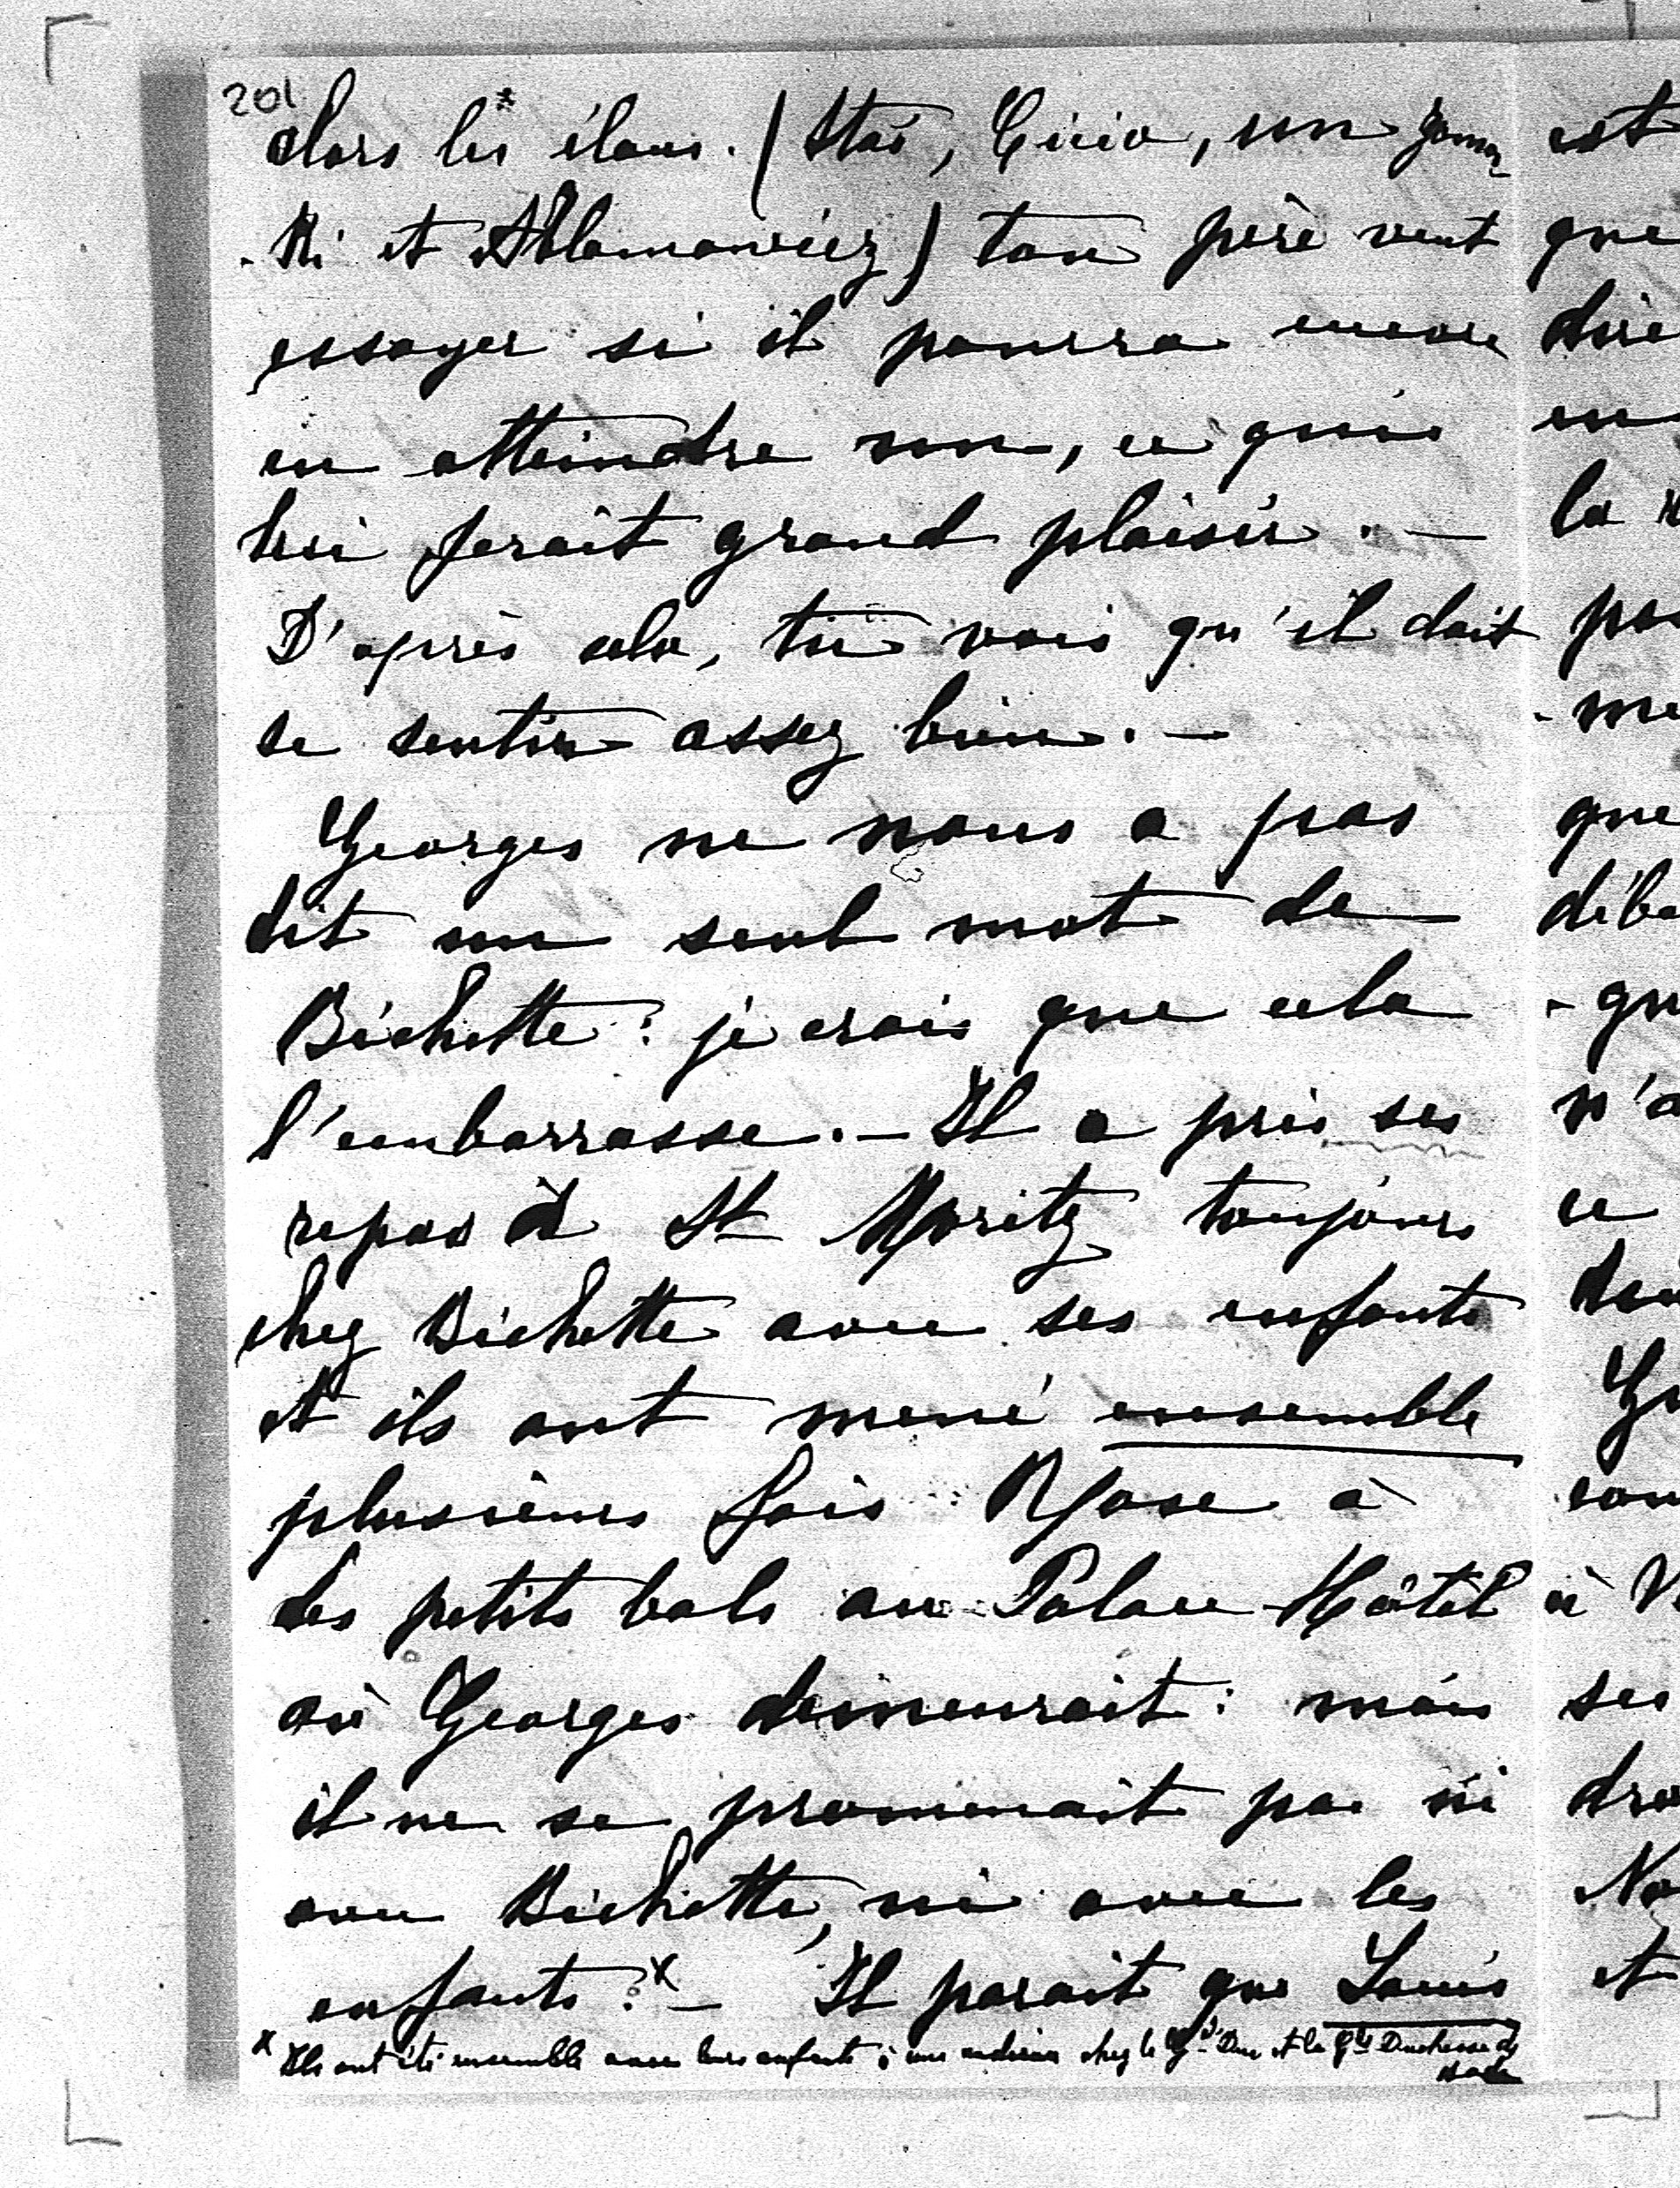 201
dans les élans. (Stas, Cicio, un
Ki et Ablamowicz) ton père veut
essayer si il pourra encore
en atteindre un, ce qui
lui ferait grand plaisir. —
D'après cela, tu vois qu'il doit
se sentir assez bien. —
Georges ne nous a pas
dit un seul mot de
Bichette: je crois que cela
l'embarrasse. — Il a pris ses
repas à St Moritz toujours
chez Bichette avec ses enfants
et ils ont mené ensemble
plusieurs fois à
des petits bals au Palace-Hôtel
où Georges demeurait: mais
il ne se promenait pas ni
avec Bichette, ni avec les
enfants.x — Il parait que Louis
x Ils ont été ensemble avec leurs enfants à une chez le Gd Duc et la Gde Duchesse de
est
que
dire
en
la
- me
que
n'a
ce
ses
et